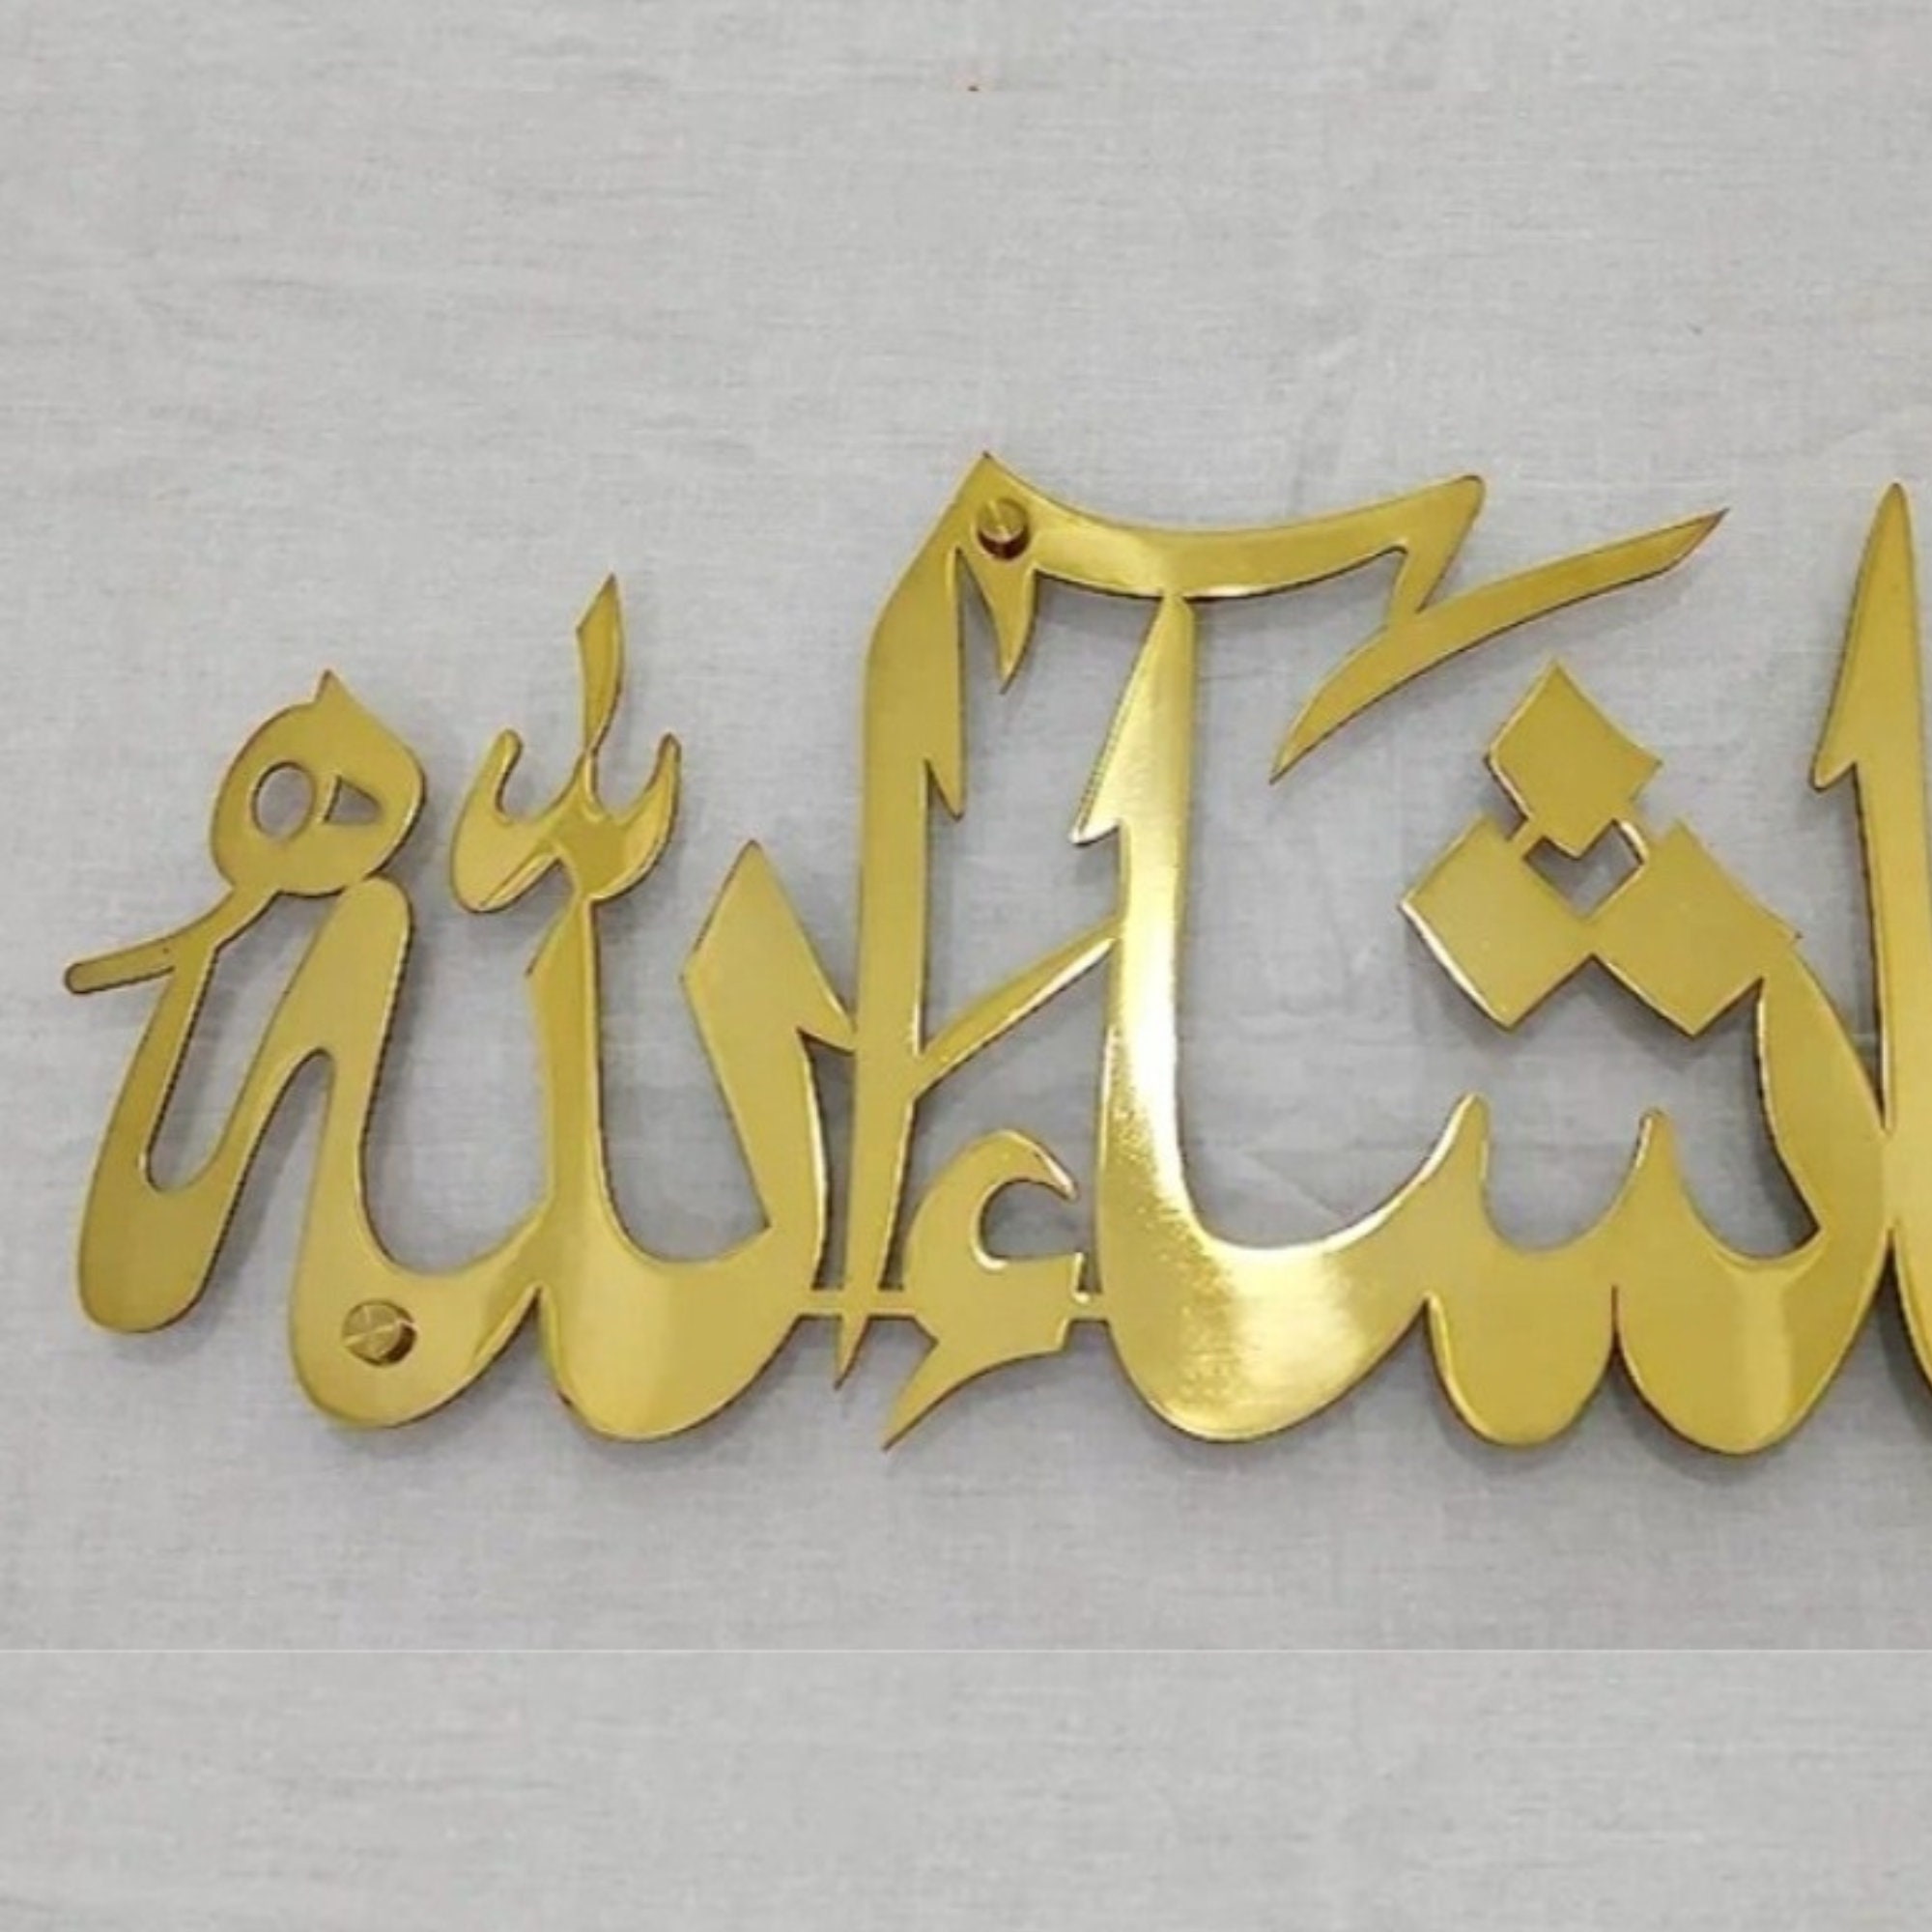 ا شاء الله